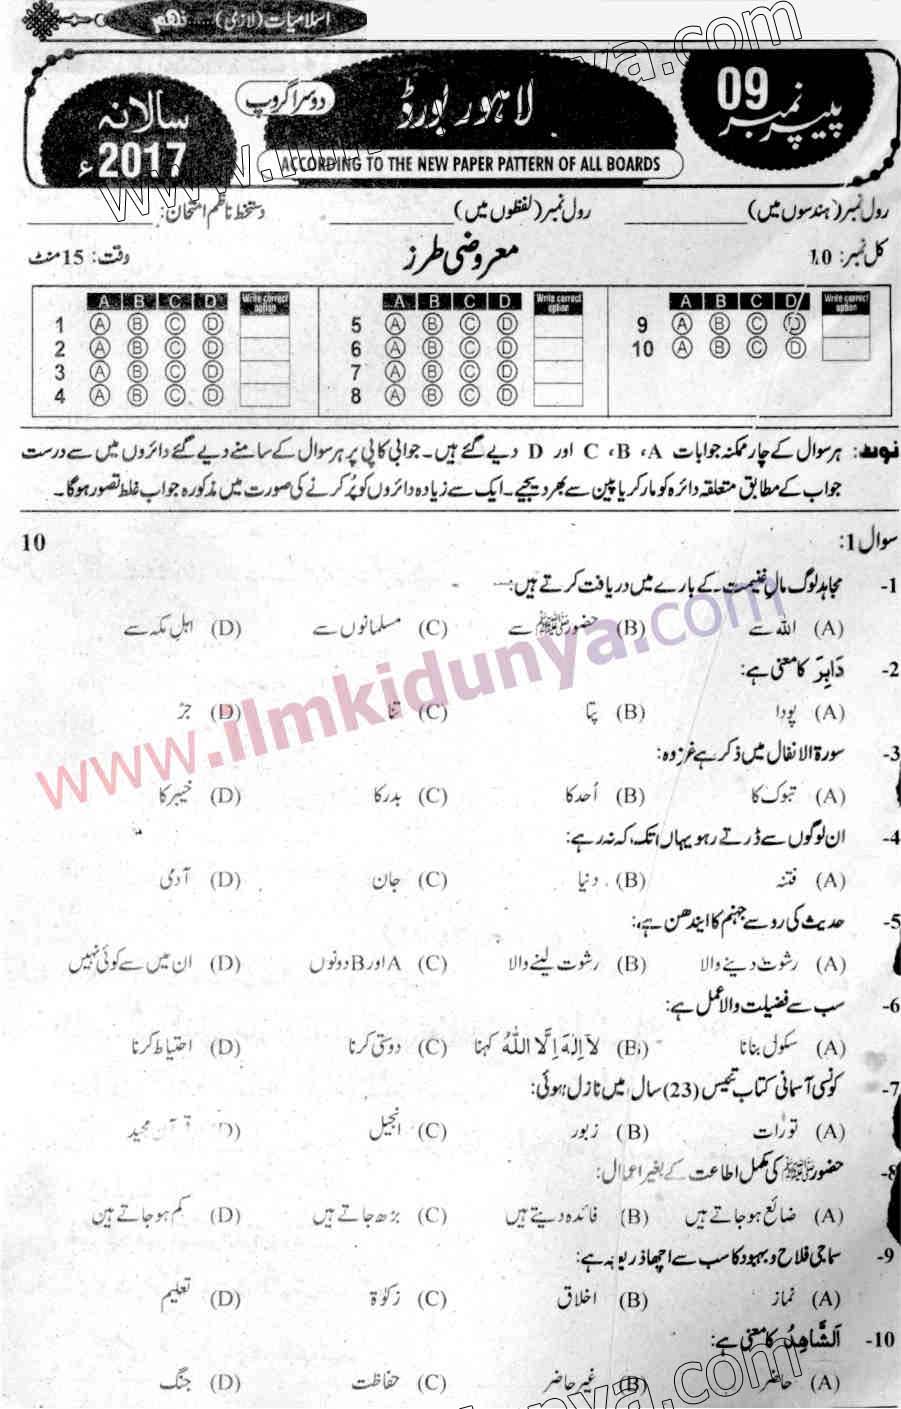 اسلامیات (لازمی) نہم
پیپر نمبر 09
لاہور بورڈ
دوسرا گروپ
سالانہ 2017ء
ACCORDING TO THE NEW PAPER PATTERN OF ALL BOARDS
رول نمبر (ہندسوں میں) ____ رول نمبر (لفظوں میں) ____ دستخط ناظم امتحان: ____
کل نمبر: 10 معروضی طرز وقت: 15 منٹ
A B C D Write correct option A B C D Write correct option A B C D Write correct option
1 A B C D 5 A B C D 9 A B C D
2 A B C D 6 A B C D 10 A B C D
3 A B C D 7 A B C D
4 A B C D 8 A B C D
نوٹ: ہر سوال کے چار ممکنہ جوابات A، B، C اور D دیے گئے ہیں۔ جوابی کاپی پر ہر سوال کے سامنے دیے گئے دائروں میں سے درست
جواب کے مطابق متعلقہ دائرہ کو مارکر یا پین سے بھر دیجیے۔ ایک سے زیادہ دائروں کو پُر کرنے کی صورت میں مذکورہ جواب غلط تصور ہوگا۔
سوال 1: 10
1- مجاہد لوگ مالِ غنیمت کے بارے میں دریافت کرتے ہیں:
(A) اللہ سے (B) حضورﷺ سے (C) مسلمانوں سے (D) اہل مکہ سے
2- دَابِرَ کا معنی ہے:
(A) پودا (B) پتا (C) تنا (D) جڑ
3- سورۃ الانفال میں ذکر ہے غزوہ:
(A) تبوک کا (B) اُحد کا (C) بدر کا (D) خیبر کا
4- ان لوگوں سے ڈرتے رہو یہاں تک، کہ نہ رہے:
(A) فتنہ (B) دنیا (C) جان (D) آدمی
5- حدیث کی رو سے جہنم کا ایندھن ہے:
(A) رشوت دینے والا (B) رشوت لینے والا (C) A اور B دونوں (D) ان میں سے کوئی نہیں
6- سب سے فضیلت والا عمل ہے:
(A) سکول بنانا (B) لَآ اِلٰهَ اِلَّا اللّٰهُ کہنا (C) دوستی کرنا (D) احتیاط کرنا
7- کونسی آسمانی کتاب تئیس (23) سال میں نازل ہوئی:
(A) تورات (B) زبور (C) انجیل (D) قرآن مجید
8- حضورﷺ کی مکمل اطاعت کے بغیر اعمال:
(A) ضائع ہو جاتے ہیں (B) فائدہ دیتے ہیں (C) بڑھ جاتے ہیں (D) کم ہو جاتے ہیں
9- سماجی فلاح و بہبود کا سب سے اچھا ذریعہ ہے:
(A) نماز (B) اخلاق (C) زکوٰۃ (D) تعلیم
10- اَلشَّاهِدُ کا معنی ہے:
(A) حاضر (B) غیر حاضر (C) حفاظت (D) جنگ
www.ilmkidunya.com